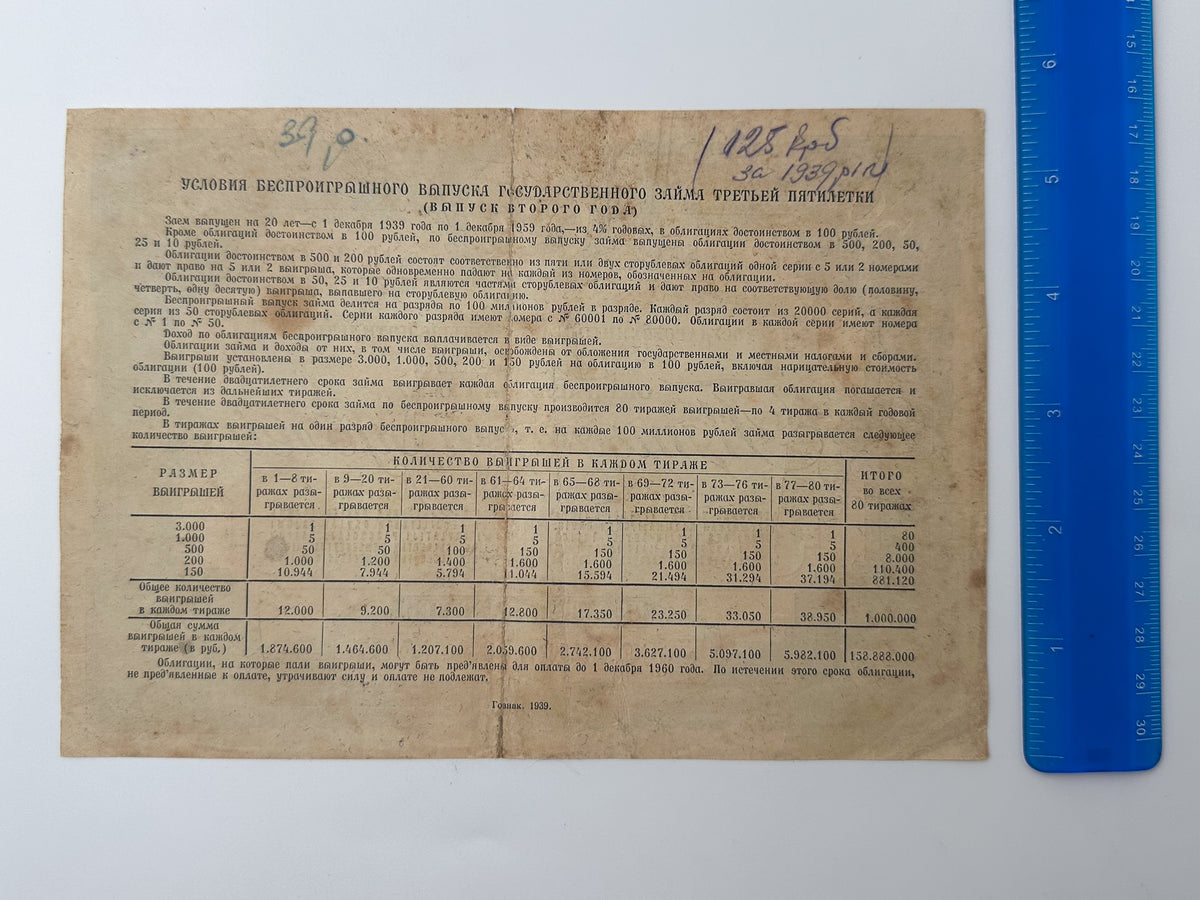 39 р.
125 крб
за 1939
УСЛОВИЯ БЕСПРОИГРЫШНОГО ВЫПУСКА ГОСУДАРСТВЕННОГО ЗАЙМА ТРЕТЬЕЙ ПЯТИЛЕТКИ
(ВЫПУСК ВТОРОГО ГОДА)
Заем выпущен на 20 лет—с 1 декабря 1939 года по 1 декабря 1959 года,—из 4% годовых, в облигациях достоинством в 100 рублей.
Кроме облигаций достоинством в 100 рублей, по беспроигрышному выпуску займа выпущены облигации достоинством в 500, 200, 50,
25 и 10 рублей.
Облигации достоинством в 500 и 200 рублей состоят соответственно из пяти или двух сторублевых облигаций одной серии с 5 или 2 номерами
и дают право на 5 или 2 выигрыша, которые одновременно падают на каждый из номеров, обозначенных на облигации.
Облигации достоинством в 50, 25 и 10 рублей являются частями сторублевых облигаций и дают право на соответствующую долю (половину,
четверть, одну десятую) выигрыша, выпавшего на сторублевую облигацию.
Беспроигрышный выпуск займа делится на разряды по 100 миллионов рублей в разряде. Каждый разряд состоит из 20000 серий, а каждая
серия из 50 сторублевых облигаций. Серии каждого разряда имеют номера с № 60001 по № 80000. Облигации в каждой серии имеют номера
с № 1 по № 50.
Доход по облигациям беспроигрышного выпуска выплачивается в виде выигрышей.
Облигации займа и доходы от них, в том числе выигрыши, освобождены от обложения государственными и местными налогами и сборами.
Выигрыши установлены в размере 3.000, 1.000, 500, 200 и 150 рублей на облигацию в 100 рублей, включая нарицательную стоимость
облигации (100 рублей).
В течение двадцатилетнего срока займа выигрывает каждая облигация беспроигрышного выпуска. Выигравшая облигация погашается и
исключается из дальнейших тиражей.
В течение двадцатилетнего срока займа по беспроигрышному выпуску производится 80 тиражей выигрышей—по 4 тиража в каждый годовой
период.
В тиражах выигрышей на один разряд беспроигрышного выпуска, т. е. на каждые 100 миллионов рублей займа разыгрывается следующее
количество выигрышей:
РАЗМЕР ВЫИГРЫШЕЙ КОЛИЧЕСТВО ВЫИГРЫШЕЙ В КАЖДОМ ТИРАЖЕ ИТОГО во всех 80 тиражах
в 1—8 тиражах разыгрывается в 9—20 тиражах разыгрывается в 21—60 тиражах разыгрывается в 61—64 тиражах разыгрывается в 65—68 тиражах разыгрывается в 69—72 тиражах разыгрывается в 73—76 тиражах разыгрывается в 77—80 тиражах разыгрывается
3.000 1 1 1 1 1 1 1 1 80
1.000 5 5 5 5 5 5 5 5 400
500 50 50 100 150 150 150 150 150 8.000
200 1.000 1.200 1.400 1.600 1.600 1.600 1.600 1.600 110.400
150 10.944 7.944 5.794 11.044 15.594 21.494 31.294 37.194 881.120
Общее количество выигрышей в каждом тираже 12.000 9.200 7.300 12.800 17.350 23.250 33.050 38.950 1.000.000
Общая сумма выигрышей в каждом тираже (в руб.) 1.874.600 1.464.600 1.207.100 2.059.600 2.742.100 3.627.100 5.097.100 5.982.100 158.888.000
Облигации, на которые пали выигрыши, могут быть пред'явлены для оплаты до 1 декабря 1960 года. По истечении этого срока облигации,
не пред'явленные к оплате, утрачивают силу и оплате не подлежат.
Гознак. 1939.
6 5 4 3 2 1
15 16 17 18 19 20 21 22 23 24 25 26 27 28 29 30